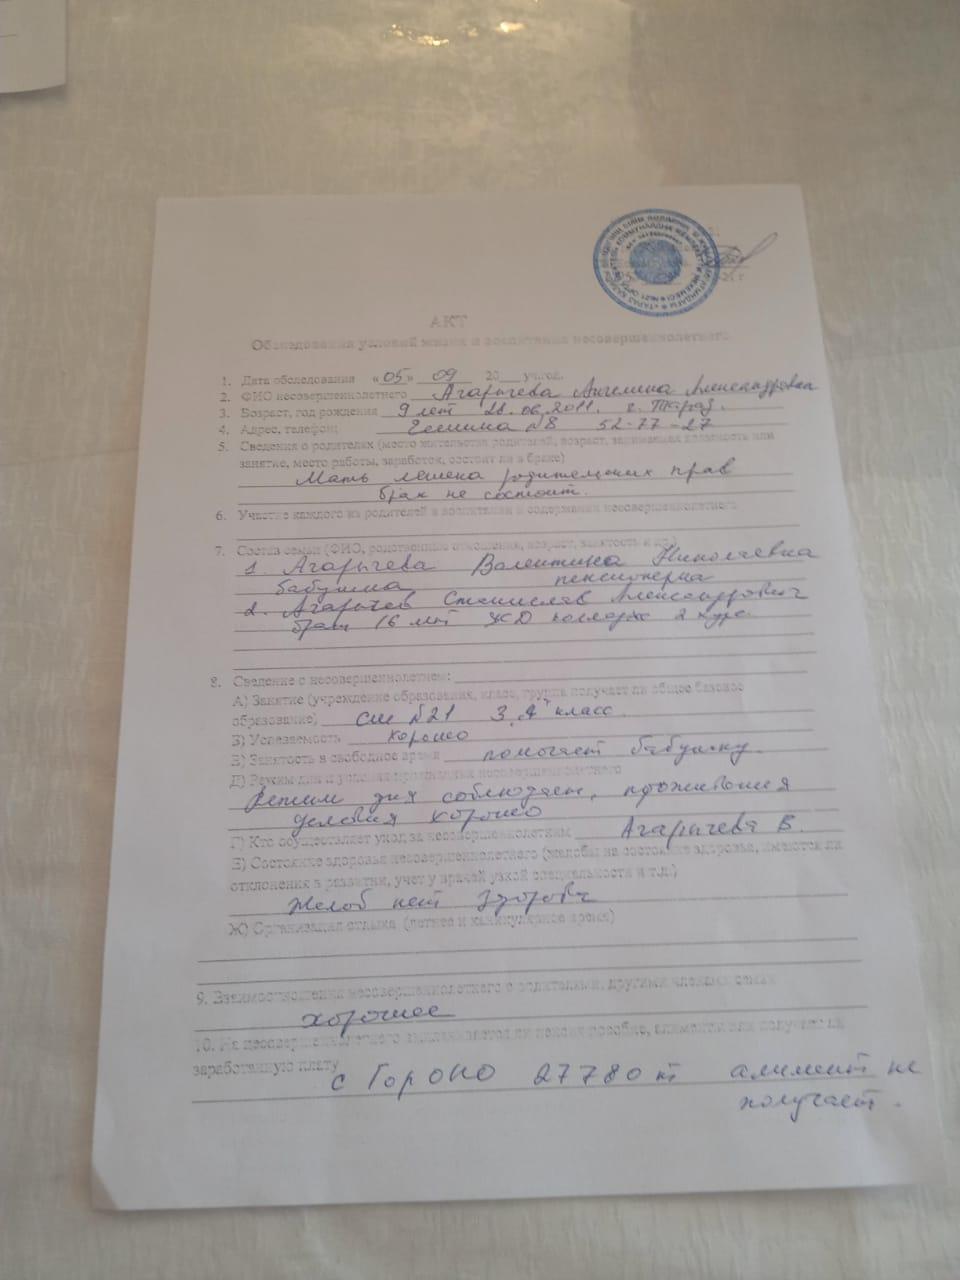 АКТ
Обследования условий жизни и воспитания несовершеннолетнего
1. Дата обследования «05» 09 20__ уч.год.
2. ФИО несовершеннолетнего Агарычева Ангелина Александровна
3. Возраст, год рождения 9 лет .06.2011. г. Тараз.
4. Адрес, телефон №8 52-77-27
5. Сведения о родителях (место жительства родителей, возраст, занимаемая должность или
занятие, место работы, заработок, состоит ли в браке)
Мать лешена родительских прав
брак не состоит.
6. Участие каждого из родителей в воспитании и содержании несовершеннолетнего
7. Состав семьи (ФИО, родственные отношения, возраст, занятость и др.)
1. Агарычева Валентина Николаевна
бабушка пенсионерка
2. Агарычев Станислав Александрович
брат 16 лет ЖД колледж 2 курс.
8. Сведение о несовершеннолетнем:
А) Занятие (учреждение образования, класс, группа получает ли общее базовое
образование) сш №21 3 "А" класс
З) Успеваемость хорошо
В) Занятость в свободное время помогает бабушку.
Д) Режим дня и условия проживания несовершеннолетнего
Режим дня соблюдает, проживания
условия хорошо
Г) Кто осуществляет уход за несовершеннолетним Агарычева В.
Е) Состояние здоровья несовершеннолетнего (жалобы на состояние здоровья, имеются ли
отклонения в развитии, учет у врачей узкой специальности и т.д.)
Жалоб нет Здорова
Ж) Организация отдыха (летнее и каникулярное время)
9. Взаимоотношения несовершеннолетнего с родителями, другими членами семьи
хорошее
10. На несовершеннолетнего выплачивается ли пенсия пособие, алименты или получает ли
заработанную плату с ГорОНО 27780 тг алимент не
получает.